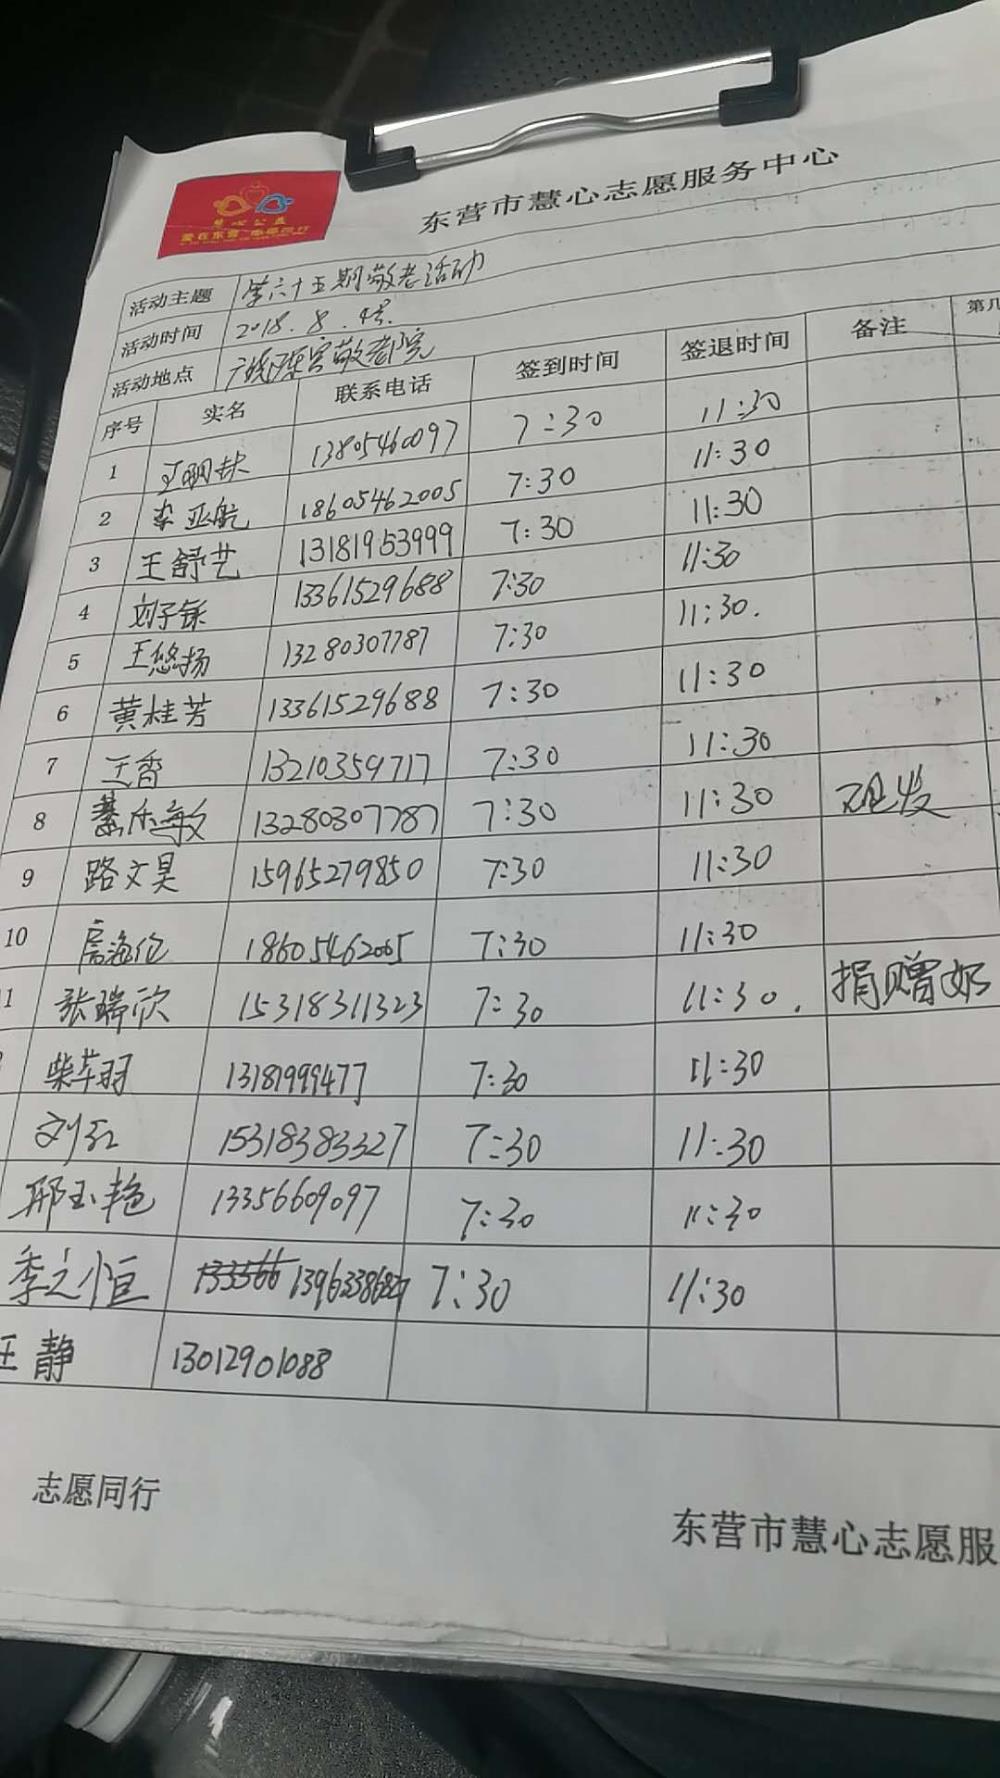 东营市慧心志愿服务中心
慧心公益
爱在东营 幸福同行
活动主题 第六十五期敬老活动
活动时间 2018.8.4号.
活动地点 敬老院
序号 实名 联系电话 签到时间 签退时间 备注 第几
1 13805460097 7:30 11:30
2 李亚航 18605462005 7:30 11:30
3 王舒艺 13181953999 7:30 11:30
4 刘子铄 13361529688 7:30 11:30
5 王悠扬 13280307787 7:30 11:30.
6 黄桂芳 13361529688 7:30 11:30
7 王香 13210359717 7:30 11:30
8 綦乐敏 13280307787 7:30 11:30
9 路文昊 15965279850 7:30 11:30
10 房海伦 18605462005 7:30 11:30
1 张瑞欣 15318311323 7:30 11:30. 捐赠奶
柴芊羽 13181999477 7:30 11:30
刘红 15318383327 7:30 11:30
邢玉艳 13356609097 7:30 11:30
季之恒 133566 13963386827 7:30 11:30
王静 13012901088
志愿同行
东营市慧心志愿服